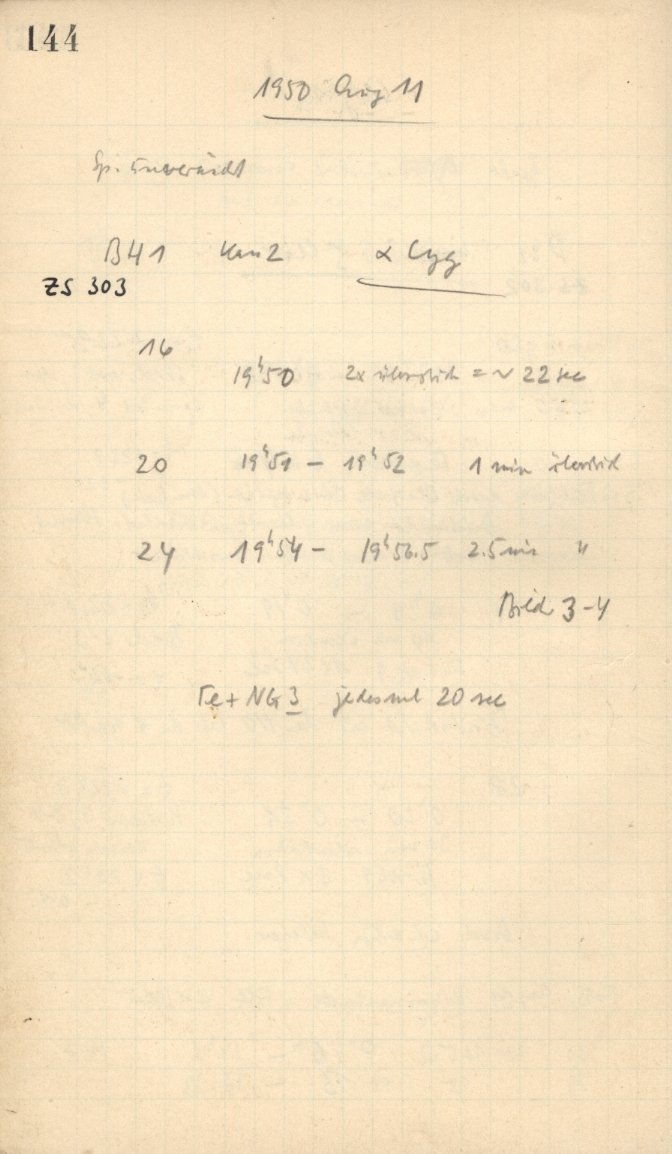 144
1950 Aug 11
Sp. unverändt
B41 Kam 2 α Cyg
ZS 303
16
19ʰ50 2x überstrich = ~ 22 sec
20 19ʰ51 – 19ʰ52 1 min überstrich
24 19ʰ54 – 19ʰ56.5 2.5 min "
Bild 3-4
Fe + NG 3 jedesmal 20 sec